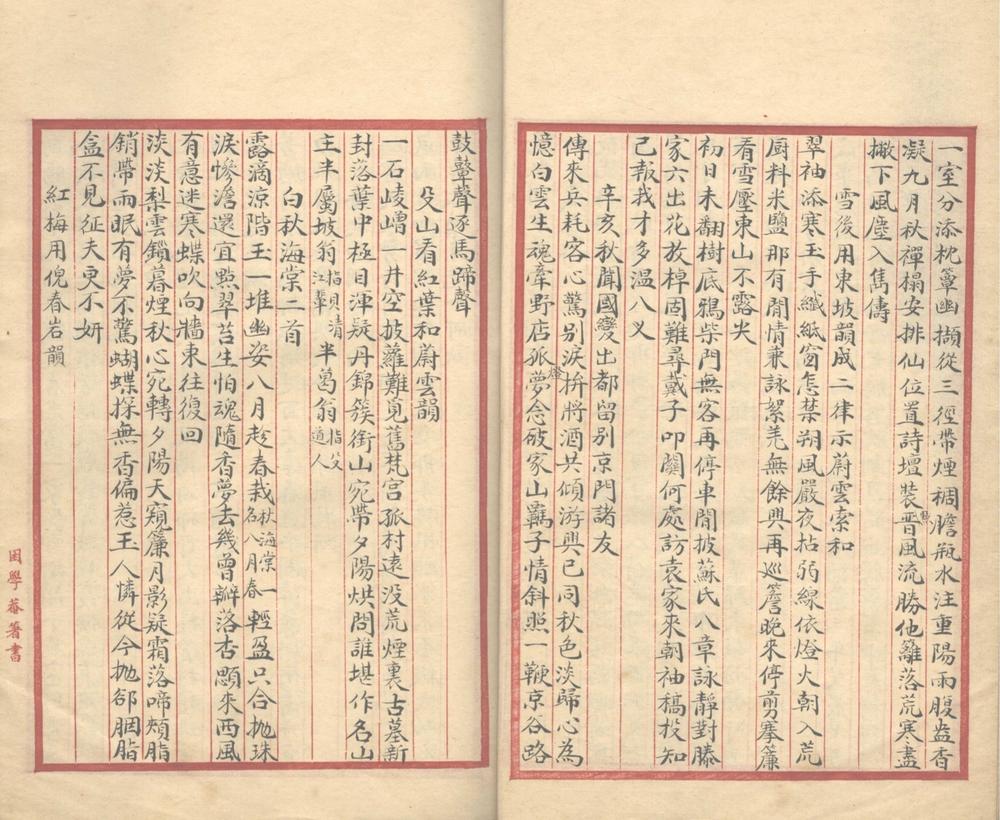 一室分添枕簟幽擷從三徑帶煙稠膽瓶水注重陽雨腹盎香
凝九月秋禪榻安排仙位置詩壇裝晋風流勝他籬落荒寒盡
撇下風塵入雋儔
雪後用東坡韻成二律示蔚雲索和
翠袖添寒玉手纖紙窗怎禁朔風嚴夜拈弱線依燈火朝入荒
厨料米鹽那有閒情兼詠絮羌無餘興再巡簷晚來停剪搴簾
看雪壓東山不露尖
初日未翻樹底鴉柴門無客再停車閒披蘇氏八章詠靜對滕
家六出花放棹固難尋戴子叩關何處訪袁家來朝袖稿投知
己報我才多溫八叉
辛亥秋聞國變出都留別京門諸友
傳來兵耗客心驚別淚拚將酒共傾游興已同秋色淡歸心為
憶白雲生魂牽野店孤燈夢念破家山羈子情斜照一鞭京谷路
鼓鼙聲逐馬蹄聲
殳山看紅葉和蔚雲韻
一石崚嶒一井空披蘿難覓舊梵宮孤村遠没荒煙裏古墓新
封落葉中極目渾疑丹錦簇銜山宛帶夕陽烘問誰堪作名山
主半屬坡翁指貝清江輩半葛翁指殳道人
白秋海棠二首
露滴涼階玉一堆幽姿八月趁春栽秋海棠一名八月春輕盈只合拋珠
淚慘澹還宜點翠苔生怕魂隨香夢去幾曾瓣落杏顋來西風
有意迷寒蝶吹向牆東往復回
淡淡梨雲鎖暮煙秋心宛轉夕陽天窺簾月影疑霜落啼頰脂
銷帶雨眠有夢不驚蝴蝶探無香偏惹玉人憐從今拋卻胭脂
盒不見征夫更不妍
紅梅用倪春岩韻
困學菴著書